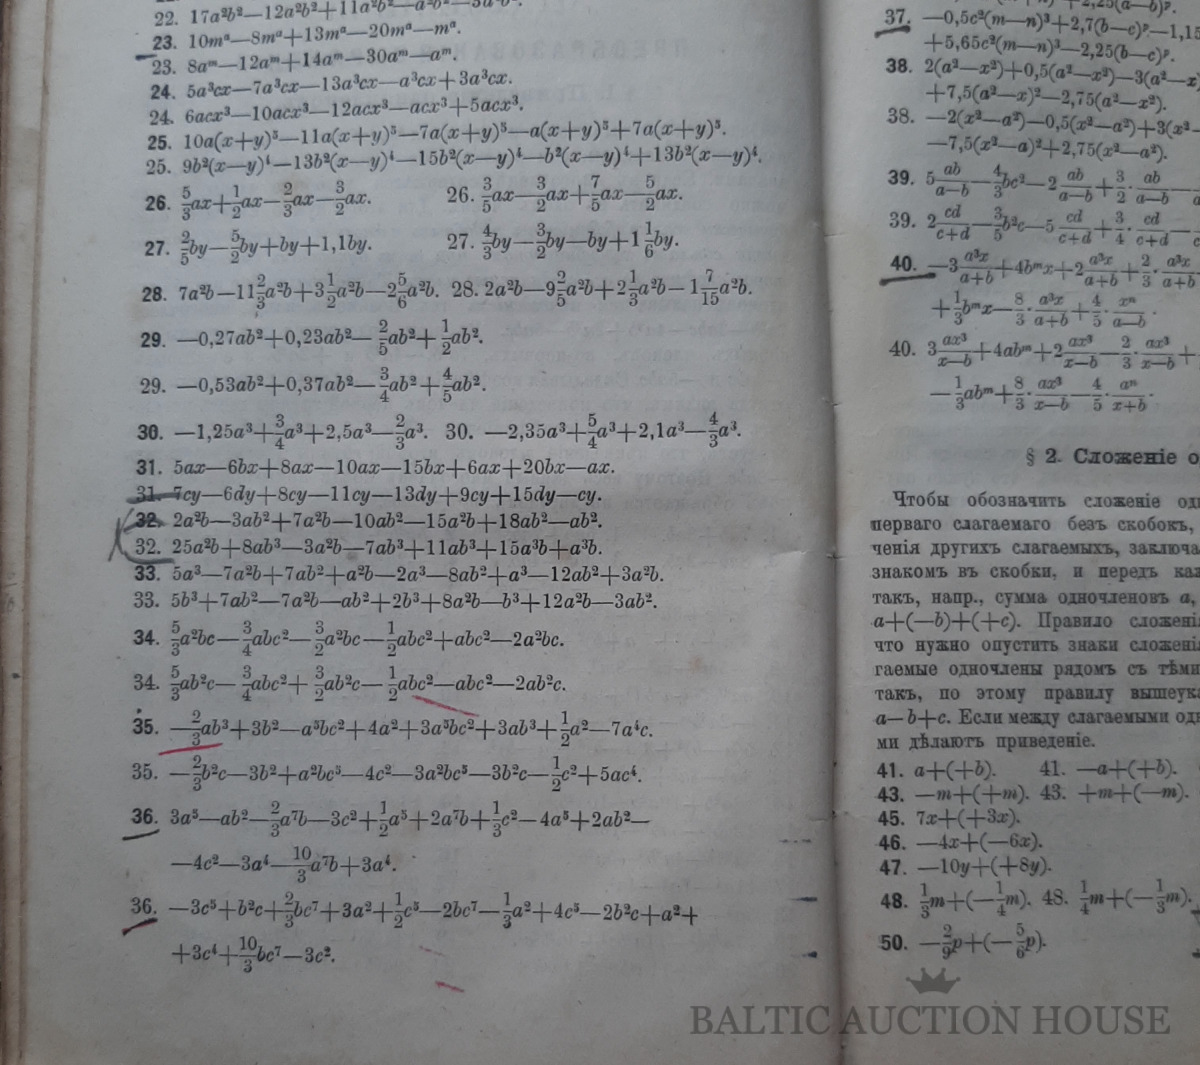 22. 17a²b²—12a²b²+11a²b²—a²b²—
23. 10mᵃ—8mᵃ+13mᵃ—20mᵃ—mᵃ.
23. 8aᵐ—12aᵐ+14aᵐ—30aᵐ—aᵐ.
24. 5a³cx—7a³cx—13a³cx—a³cx+3a³cx.
24. 6acx³—10acx³—12acx³—acx³+5acx³.
25. 10a(x+y)⁵—11a(x+y)⁵—7a(x+y)⁵—a(x+y)⁵+7a(x+y)⁵.
25. 9b²(x—y)⁴—13b²(x—y)⁴—15b²(x—y)⁴—b²(x—y)⁴+13b²(x—y)⁴.
26. 5/3ax+1/2ax—2/3ax—3/2ax. 26. 3/5ax—3/2ax+7/5ax—5/2ax.
27. 2/5by—5/2by+by+1,1by. 27. 4/3by—3/2by—by+1 1/6by.
28. 7a²b—11 2/3a²b+3 1/2a²b—2 5/6a²b. 28. 2a²b—9 2/5a²b+2 1/3a²b—1 7/15a²b.
29. —0,27ab²+0,23ab²—2/5ab²+1/2ab².
29. —0,53ab²+0,37ab²—3/4ab²+4/5ab².
30. —1,25a³+3/4a³+2,5a³—2/3a³. 30. —2,35a³+5/4a³+2,1a³—4/3a³.
31. 5ax—6bx+8ax—10ax—15bx+6ax+20bx—ax.
31. 7cy—6dy+8cy—11cy—13dy+9cy+15dy—cy.
32. 2a²b—3ab²+7a²b—10ab²—15a²b+18ab²—ab².
32. 25a²b+8ab³—3a²b—7ab³+11ab³+15a³b+a³b.
33. 5a³—7a²b+7ab²+a²b—2a³—8ab²+a³—12ab²+3a²b.
33. 5b³+7ab²—7a²b—ab²+2b³+8a²b—b³+12a²b—3ab².
34. 5/3a²bc—3/4abc²—3/2a²bc—1/2abc²+abc²—2a²bc.
34. 5/3ab²c—3/4abc²+3/2ab²c—1/2abc²—abc²—2ab²c.
35. —2/3ab³+3b²—a⁵bc²+4a²+3a⁵bc²+3ab³+1/2a²—7a⁴c.
35. —2/3b²c—3b²+a²bc⁵—4c²—3a²bc⁵—3b²c—1/2c²+5ac⁴.
36. 3a⁵—ab²—2/3a⁷b—3c²+1/2a⁵+2a⁷b+1/3c²—4a⁵+2ab²—
—4c²—3a⁴—10/3a⁷b+3a⁴.
36. —3c⁵+b²c+2/3bc⁷+3a²+1/2c⁵—2bc⁷—1/3a²+4c⁵—2b²c+a²+
+3c⁴+10/3bc⁷—3c².
37. —0,5c²(m—n)³+2,7(b—c)ᵖ—1,15
+5,65c²(m—n)³—2,25(b—c)ᵖ.
38. 2(a²—x²)+0,5(a²—x²)—3(a²—x)
+7,5(a²—x)²—2,75(a²—x²).
38. —2(x²—a²)—0,5(x²—a²)+3(x²—
—7,5(x²—a)²+2,75(x²—a²).
39. 5 ab/a—b—4/3bc²—2 ab/a—b+3/2·ab/a—b—
39. 2 cd/c+d—3/5b²c—5 cd/c+d+3/4·cd/c+d—
40. —3 a³x/a+b+4bᵐx+2 a³x/a+b+2/3·a³x/a+b
+1/3bᵐx—8/3·a³x/a+b+4/5·xⁿ/a—b.
40. 3 ax³/x—b+4abᵐ+2 ax³/x—b—2/3·ax³/x—b+
—1/3abᵐ+8/3·ax³/x—b—4/5·aⁿ/x+b.
§ 2. Сложеніе о
Чтобы обозначить сложеніе од
перваго слагаемаго безъ скобокъ,
ченія другихъ слагаемыхъ, заключа
знакомъ въ скобки, и передъ каж
такъ, напр., сумма одночленовъ a,
a+(—b)+(+c). Правило сложені
что нужно опустить знаки сложені
гаемые одночлены рядомъ съ тѣми
такъ, по этому правилу вышеука
a—b+c. Если между слагаемыми од
ми дѣлаютъ приведеніе.
41. a+(+b). 41. —a+(+b).
43. —m+(+m). 43. +m+(—m).
45. 7x+(+3x).
46. —4x+(—6x).
47. —10y+(+8y).
48. 1/3m+(—1/4m). 48. 1/4m+(—1/3m).
50. —2/9p+(—5/6p).
BALTIC AUCTION HOUSE